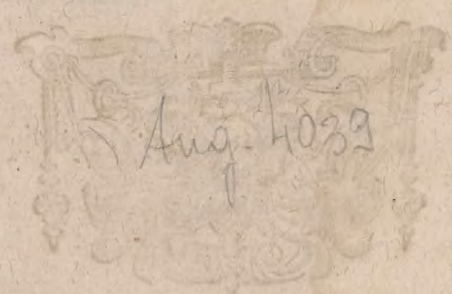 Aug. 4039